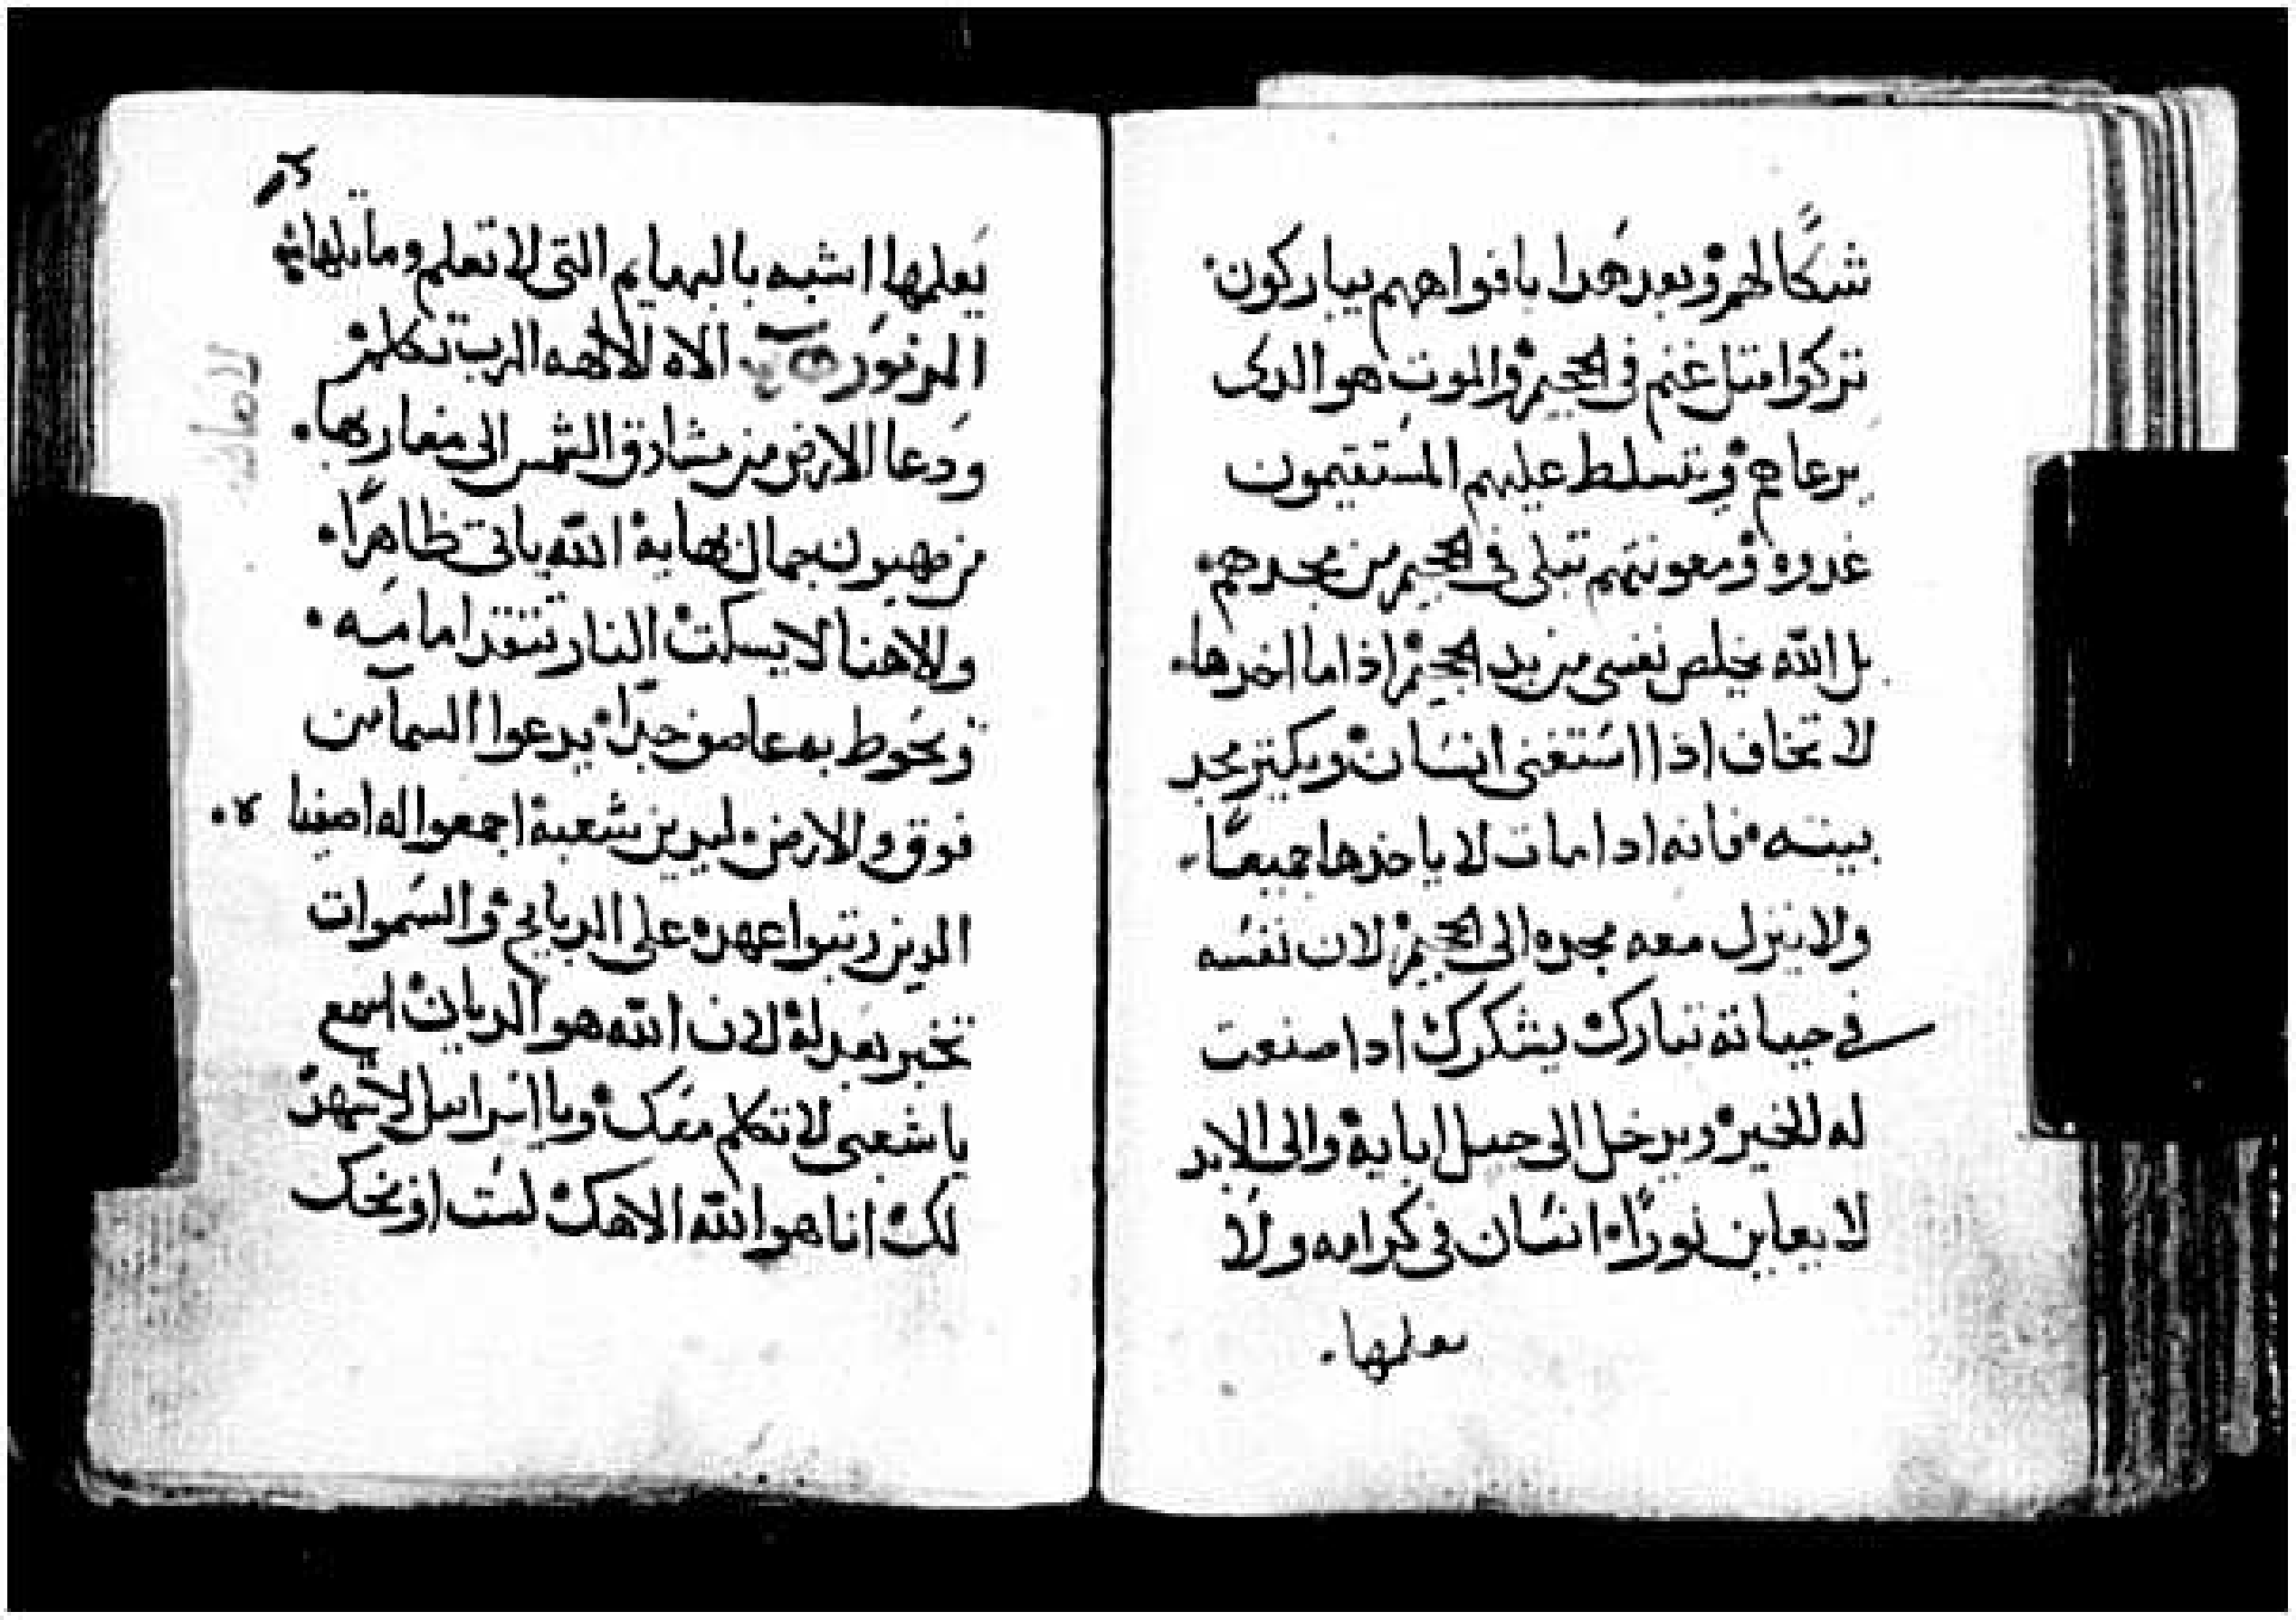 شكًا لهم وبعد هدا بافواههم يباركون
تركوا متل غنم فى الجحيم والموت هو الدى
يرعاهم وتتسلط عليهم المستقيمون
غدوه ومعونتهم تبلى فى الجحيم من مجدهم
بل الله يخلص نفسى من يد الجحيم اذا ما اخدها
لا تخاف اذا استغنى انسان ويكتر مجد
بيته فانه ادا مات لا ياخدها جميعًا
ولا ينزل معه مجده الى الجحيم لان نفسه
فى حياته تبارك يشكرك ادا صنعت
له الخير ويدخل الى جيل ابايه والى الابد
لا يعاين نورًا انسان فى كرامه ولا
يعلمها
يعلمها اشبه بالبهايم التى لا تعلم وماتلها
المزمور الاه الالهه الرب تكلم
ودعا الارض من مشارق الشمس الى مغاربها
من صهيون جمال بهايه الله ياتى ظاهرًا
والاهنا لا يسكت النار تتقد امامه
وتحوط به عاصف جدًا يدعوا السما من
فوق والارض ليدين شعبه اجمعوا له اصفيا ه
الدين رتبوا عهده على الدبايح والسموات
تخبر بعدله لان الله هو الديان اسمع
يا شعبى لاتكلم معك ويا اسراييل لاشهد
لك انا هو الله الاهك لست اوبخك